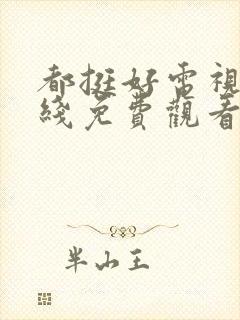 都挺好電視
綫免費觀看
半山王